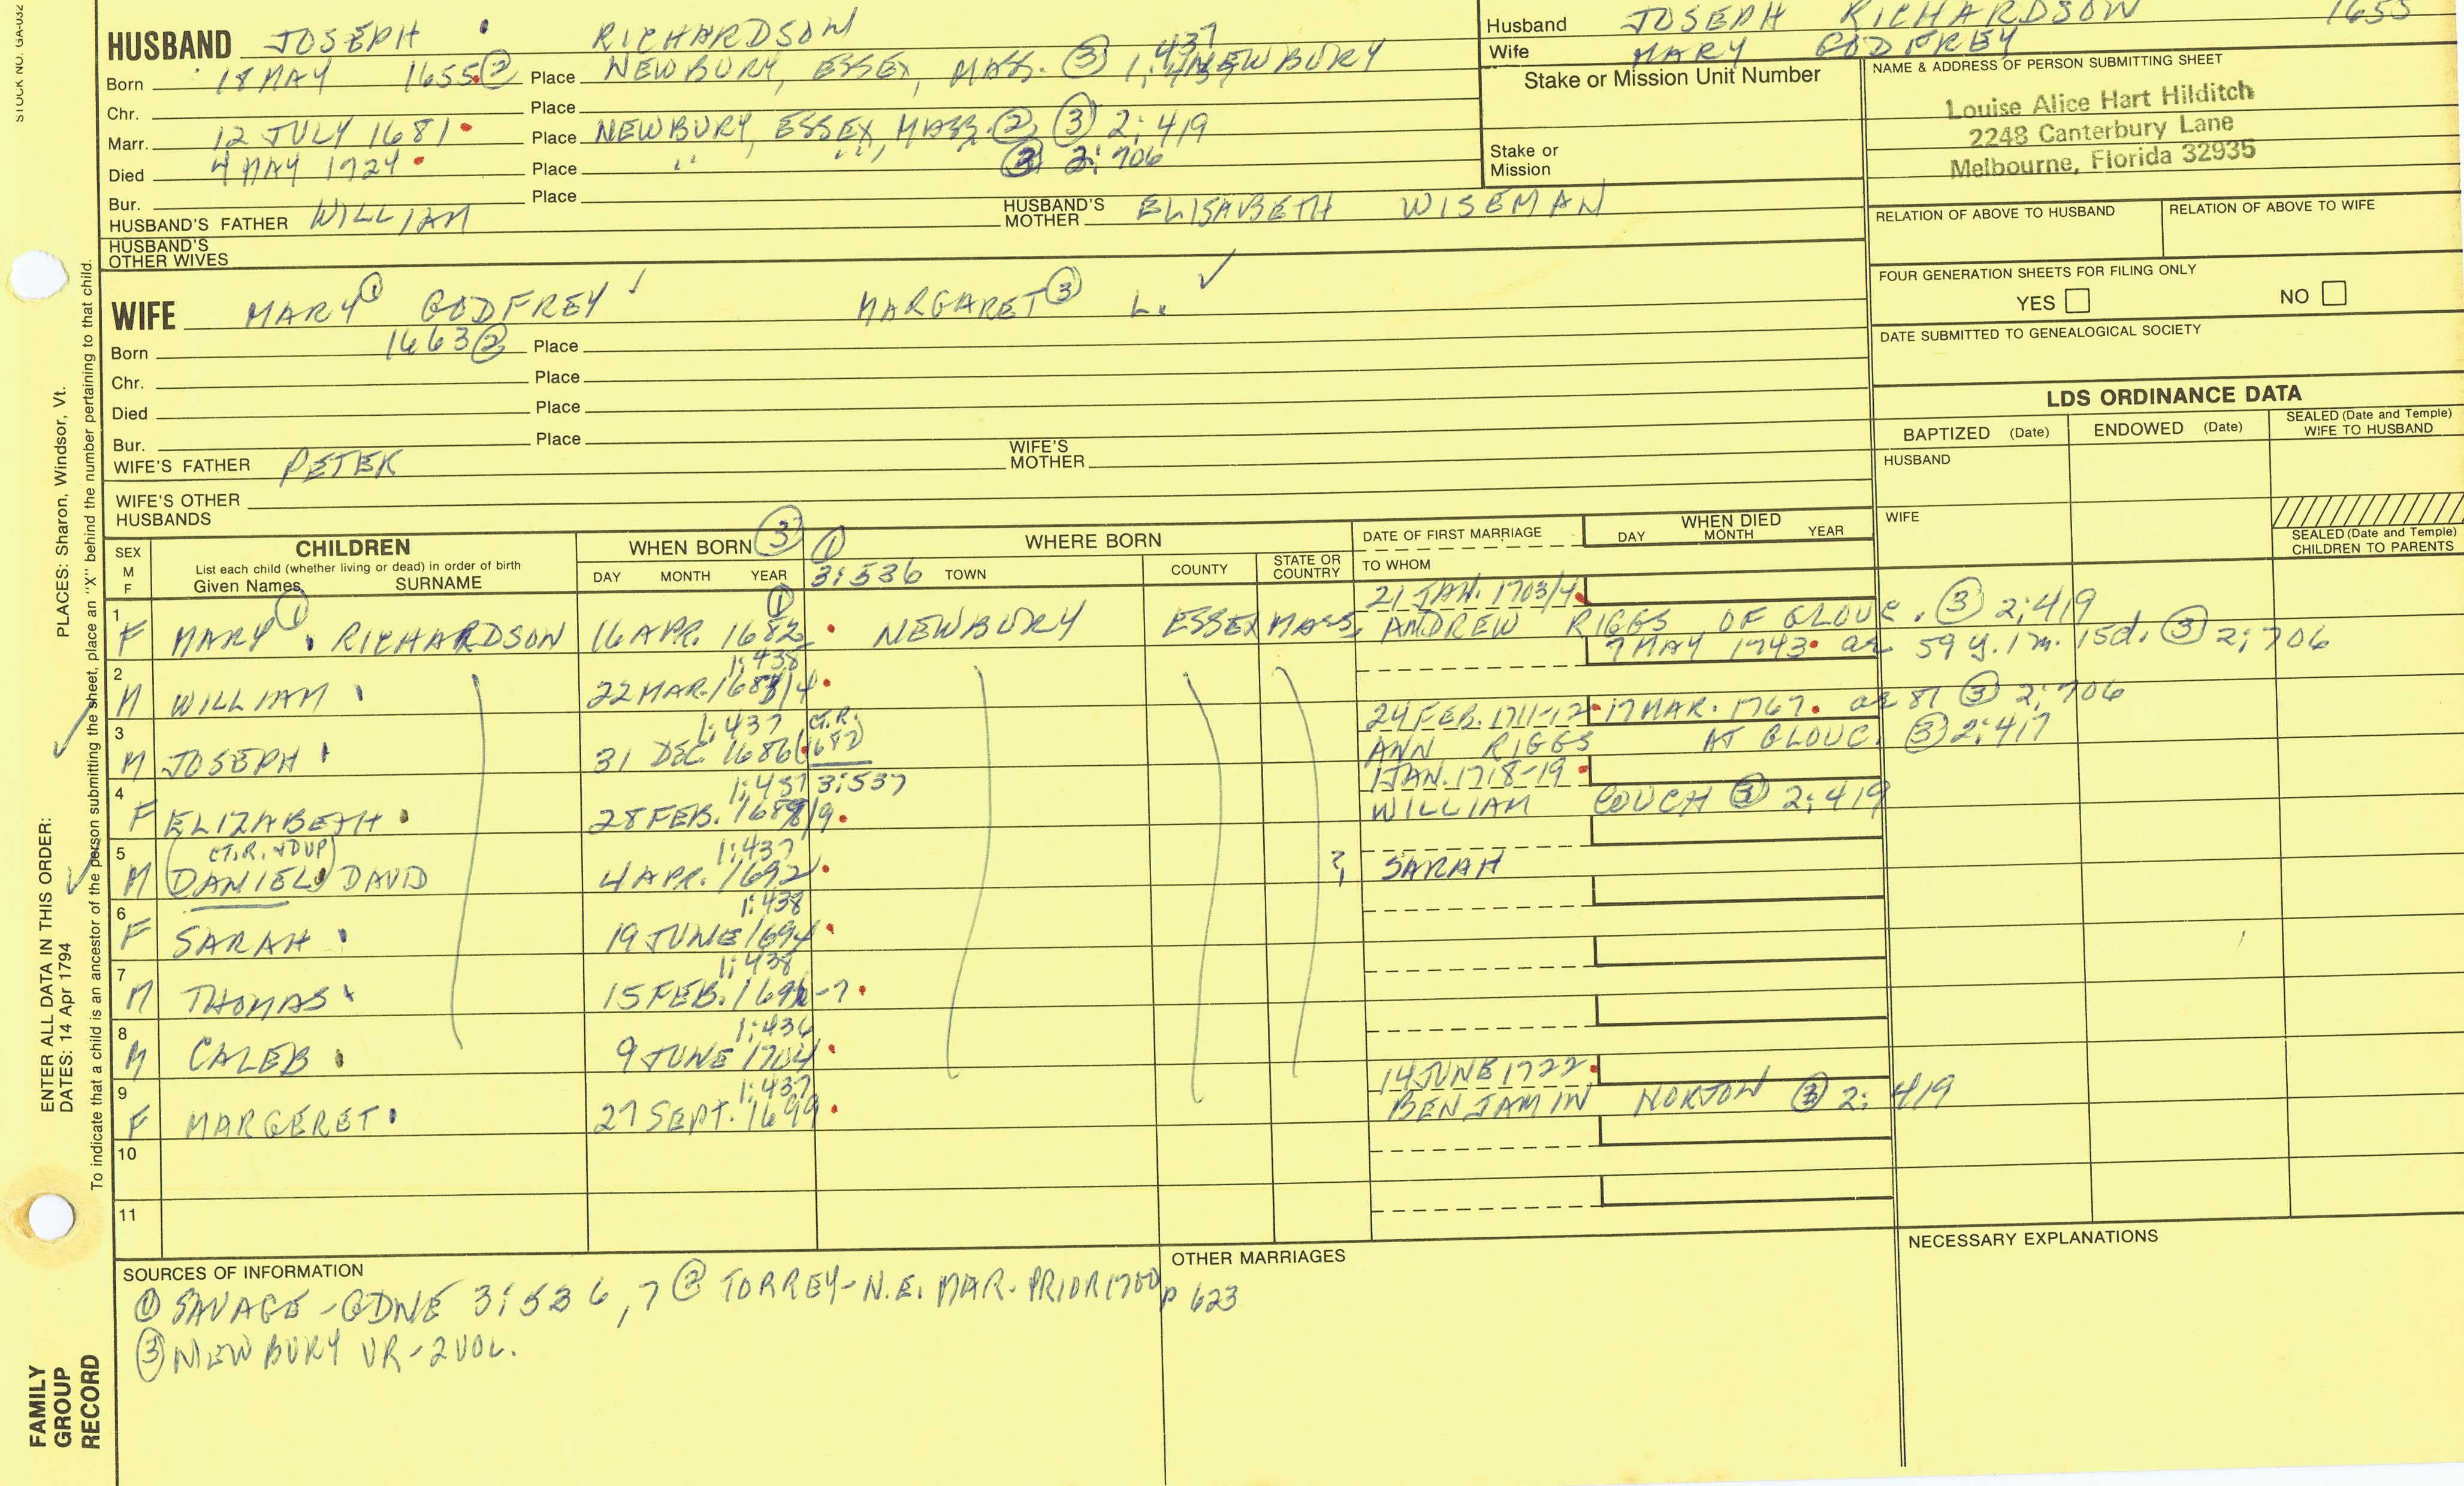 STOCK NO. GA-032
HUSBAND JOSEPH RICHARDSON
Born 18 MAY 1655 ② Place NEWBURY, ESSEX, MASS. ③ 1:437 NEWBURY
Chr. Place
Marr. 12 JULY 1681 Place NEWBURY, ESSEX, MASS. ② ③ 2:419
Died 4 MAY 1724 Place " " " ③ 2:706
Bur. Place
HUSBAND'S FATHER WILLIAM HUSBAND'S MOTHER ELISABETH WISEMAN
HUSBAND'S OTHER WIVES
Husband JOSEPH RICHARDSON 1655
Wife MARY GODFREY
Stake or Mission Unit Number
Stake or Mission
NAME & ADDRESS OF PERSON SUBMITTING SHEET
Louise Alice Hart Hilditch
2248 Canterbury Lane
Melbourne, Florida 32935
RELATION OF ABOVE TO HUSBAND RELATION OF ABOVE TO WIFE
FOUR GENERATION SHEETS FOR FILING ONLY
YES NO
DATE SUBMITTED TO GENEALOGICAL SOCIETY
WIFE MARY ① GODFREY MARGARET ③ L.
Born 1663 ② Place
Chr. Place
Died Place
Bur. Place
WIFE'S FATHER PETER WIFE'S MOTHER
WIFE'S OTHER HUSBANDS
LDS ORDINANCE DATA
BAPTIZED (Date) ENDOWED (Date) SEALED (Date and Temple) WIFE TO HUSBAND
HUSBAND
WIFE
SEALED (Date and Temple) CHILDREN TO PARENTS
SEX M F
CHILDREN
List each child (whether living or dead) in order of birth
Given Names SURNAME
WHEN BORN ③
DAY MONTH YEAR
① 3:536
WHERE BORN
TOWN COUNTY STATE OR COUNTRY
DATE OF FIRST MARRIAGE
TO WHOM
WHEN DIED
DAY MONTH YEAR
21 JAN. 1703/4
1 F MARY ① RICHARDSON 16 APR. 1682 ① NEWBURY ESSEX MASS. ANDREW RIGGS OF GLOUC. ③ 2:419
1:438 7 MAY 1743 ae 59 y. 1 m. 15d. ③ 2:706
2 M WILLIAM 22 MAR. 1683/4
1:437 CT.R. 1682 24 FEB. 1711-12 17 MAR. 1767. ae 81 ③ 2:706
3 M JOSEPH 31 DEC. 1686 ANN RIGGS AT GLOUC. ③ 2:417
1:437 3:537 1 JAN. 1718-19
4 F ELIZABETH 28 FEB. 1688/9 WILLIAM COUCH ③ 2:419
CT.R. + DUP 1:437
5 M (DANIEL) DAVID 4 APR. 1692 ? SARAH
1:438
6 F SARAH 19 JUNE 1694
1:438
7 M THOMAS 15 FEB. 1696-7
1:436
8 M CALEB 9 JUNE 1704
1:437 14 JUNE 1722
9 F MARGERET 27 SEPT. 1699 BENJAMIN NORTON ③ 2:419
10
11
SOURCES OF INFORMATION
① SAVAGE - GDNE 3:536,7 ② TORREY - N.E. MAR. PRIOR 1700 p 623
③ NEWBURY VR - 2 VOL.
OTHER MARRIAGES
NECESSARY EXPLANATIONS
ENTER ALL DATA IN THIS ORDER:
DATES: 14 Apr 1794
PLACES: Sharon, Windsor, Vt.
To indicate that a child is an ancestor of the person submitting the sheet, place an "X" behind the number pertaining to that child.
FAMILY
GROUP
RECORD